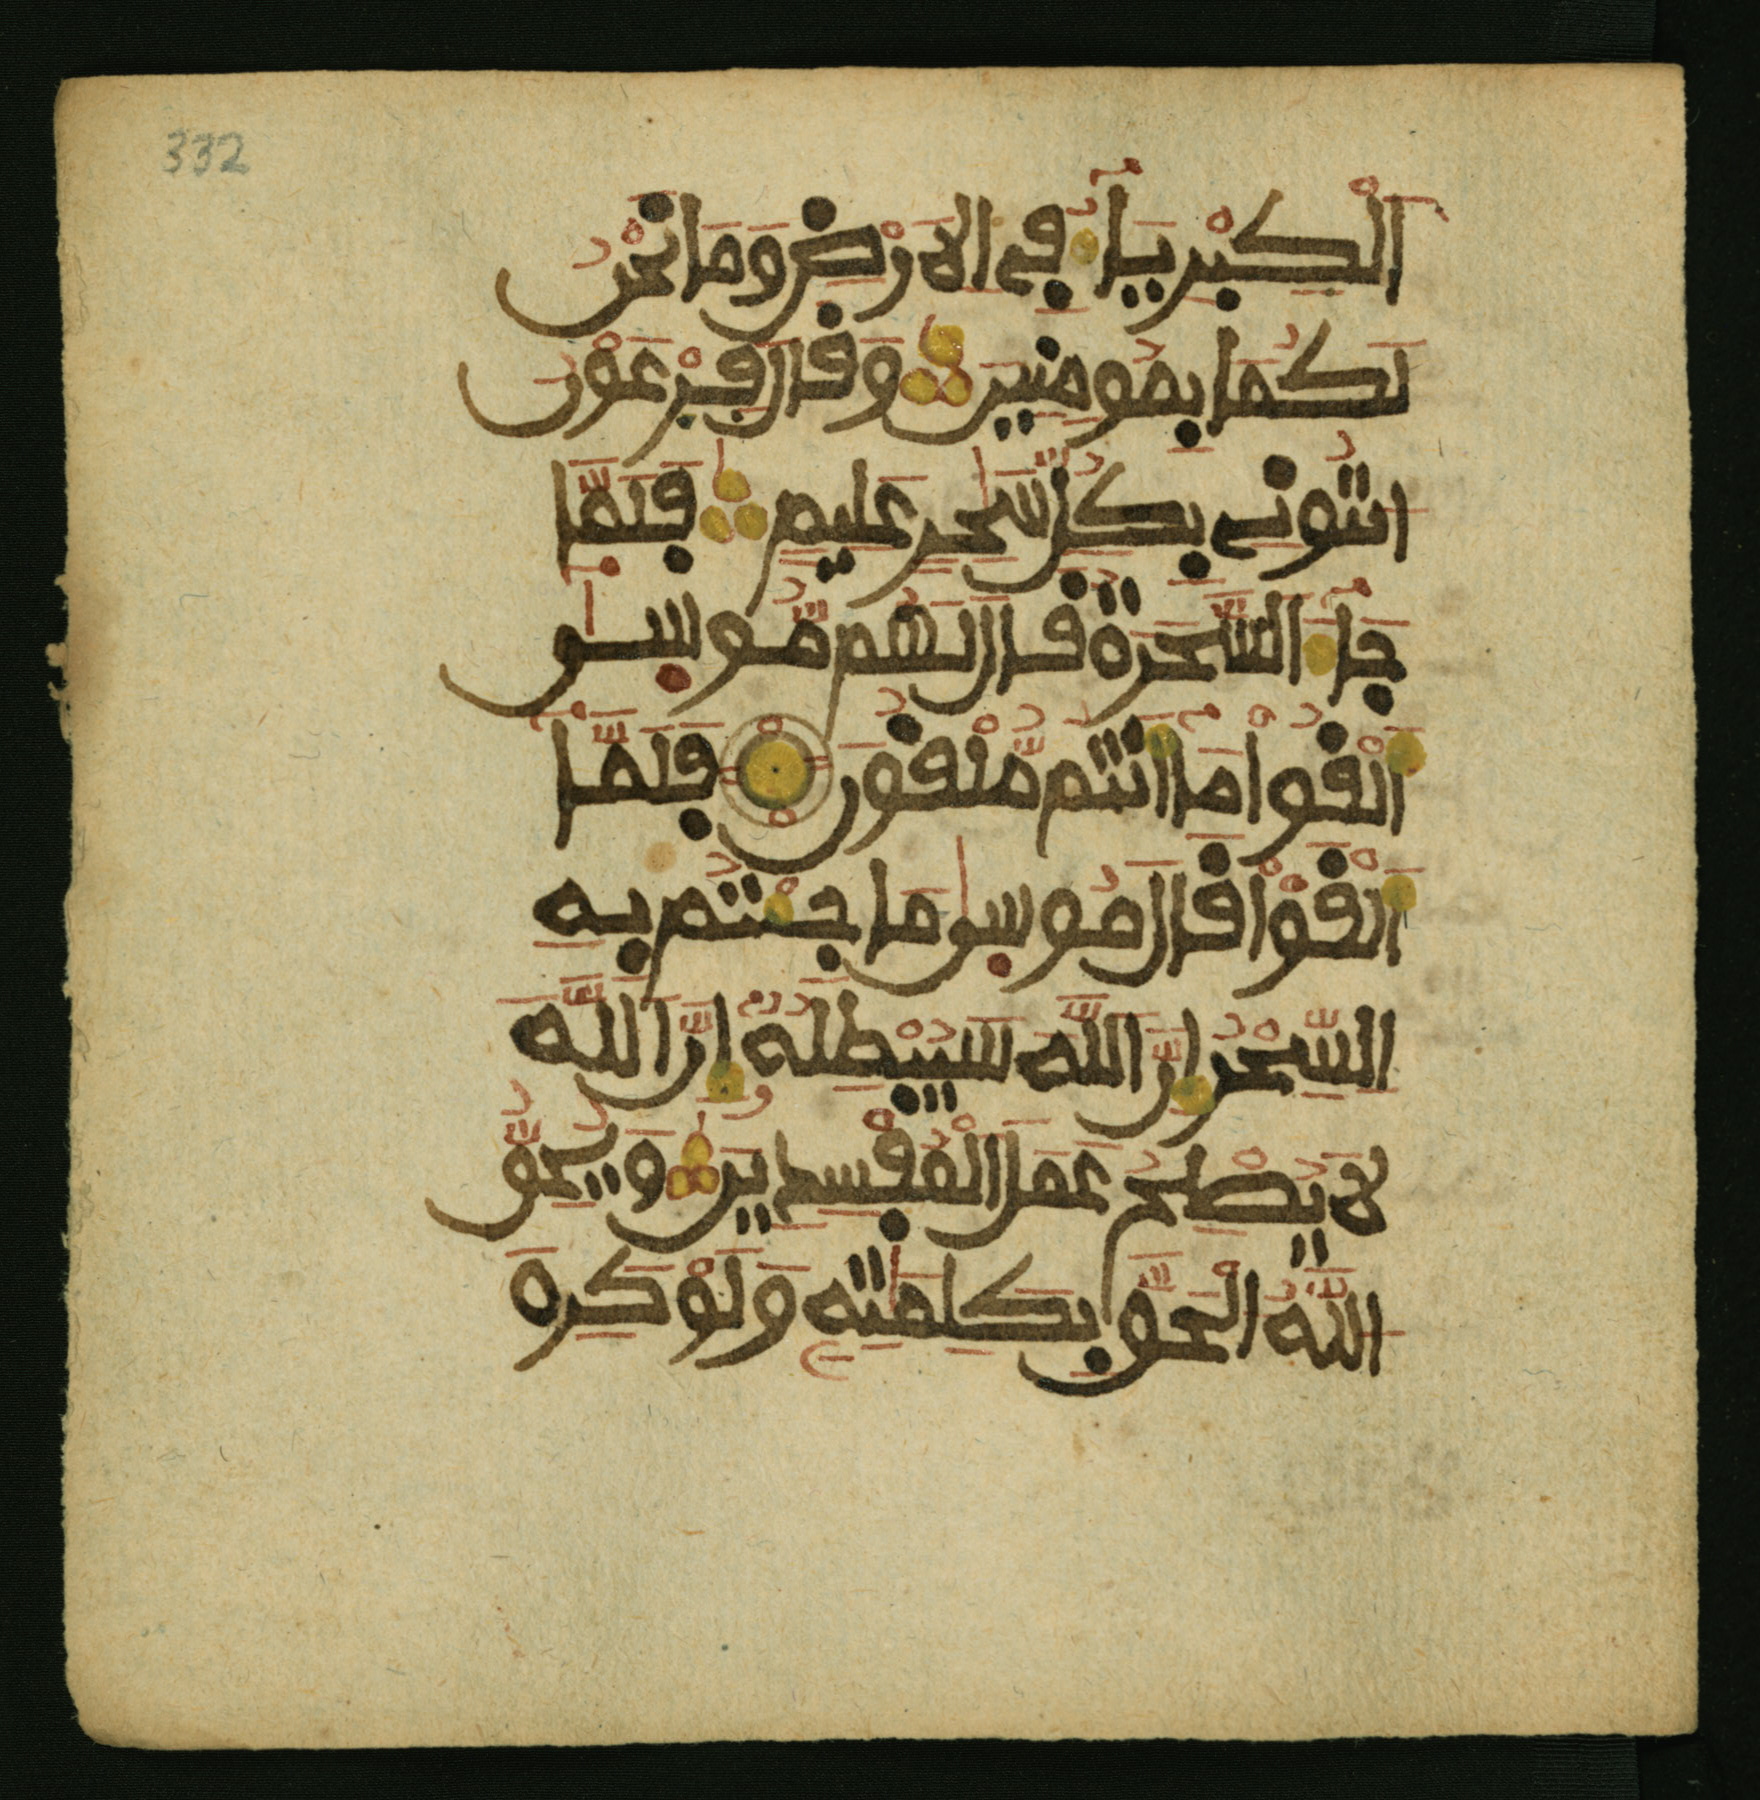 332
الْكِبْرِيَآءُ فِي الَارْضِ وَمَا نَحْنُ
لَكُمَا بِمُومِنِينَ وَقَالَ فِرْعَوْنُ
ايتُونِي بِكُلِّ سَٰحِرٍ عَلِيمٍ فَلَمَّا
جَآءَ السَّحَرَةُ قَالَ لَهُم مُّوسَىٰ
أَلْقُوا مَا أَنتُم مُّلْقُونَ فَلَمَّا
أَلْقَوْا قَالَ مُوسَىٰ مَا جِئْتُم بِهِ
السِّحْرُ إِنَّ اللَّهَ سَيُبْطِلُهُ إِنَّ اللَّهَ
لَا يُصْلِحُ عَمَلَ الْمُفْسِدِينَ وَيُحِقُّ
اللَّهُ الْحَقَّ بِكَلِمَٰتِهِ وَلَوْ كَرِهَ